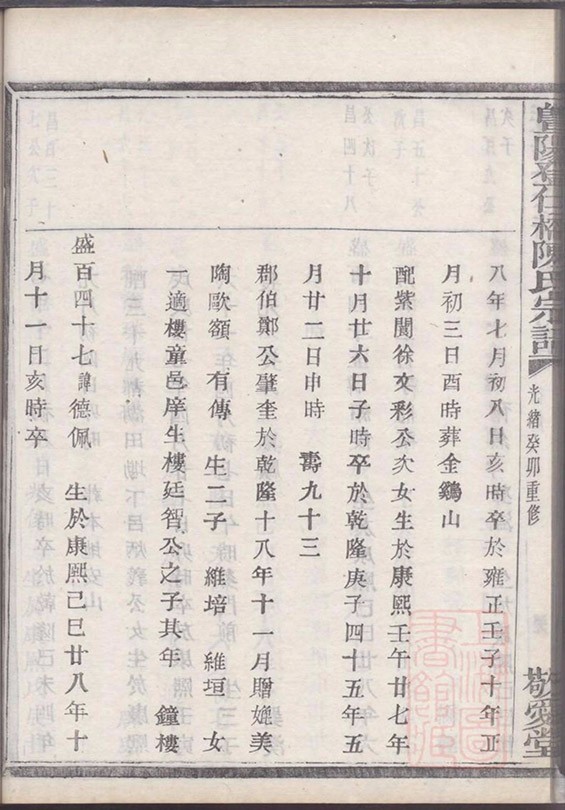 豐陽登仕橋陳氏宗譜
光緒癸卯重修
敬愛堂
八年七月初八日亥時卒於雍正壬子十年正
月初三日酉時葬金鷄山
配紫閬徐文彩公次女生於康熙壬午廿七年
十月廿六日子時卒於乾隆庚子四十五年五
月廿二日申時　壽九十三
郡伯鄭公肇奎於乾隆十八年十一月贈媲美
陶歐額　有傳　生二子　維培　維垣　女
一適樓童邑庠生樓廷智公之子其年　鐘樓
盛百四十七諱德佩　生於康熙己巳廿八年十
月十一日亥時卒